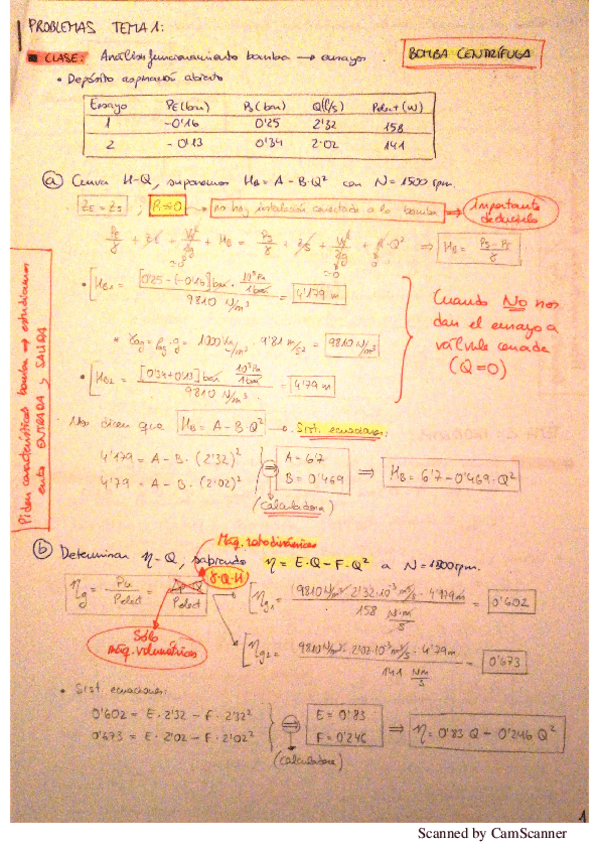 PROBLEMAS TEMA 1:
CLASE: Análisis funcionamiento bomba → ensayos.
BOMBA CENTRÍFUGA
• Depósito aspiración abierto
Ensayo PE (bar) PS (bar) Q (l/s) Pelect (W)
1 -0'16 0'25 2'32 158
2 -0'13 0'34 2'02 141
a) Curva H-Q, suponemos HB = A - B·Q² con N = 1500 rpm.
ZE = ZS ; no hay instalación conectada a la bomba → Importante deducirlo
⇒ HB = (PS - PE)/γ
• HB1 = [0'25 - (-0'16)] bar · 10⁵Pa/1bar / 9810 N/m³ = 4'179 m
* γag = ρag · g = 1000 kg/m³ · 9'81 m/s² = 9810 N/m³
• HB2 = [0'34+0'13] bar 10⁵Pa/1bar / 9810 N/m³ = 4'79 m
Cuando NO nos
dan el ensayo a
válvula cerrada
(Q=0)
Piden características bomba → estudiamos
entre ENTRADA y SALIDA
Nos dicen que HB = A - B·Q² → Sist. ecuaciones:
4'179 = A - B·(2'32)²
4'79 = A - B·(2'02)²
⇒ A = 6'7
B = 0'469
⇒ HB = 6'7 - 0'469·Q²
(calculadora)
Máq. rotodinámicas
b) Determinar η-Q, sabiendo η = E·Q - F·Q² a N = 1500 rpm.
γ·Q·H
ηg = Pu/Pelect = /Pelect
ηg1 = (9810 N/m³ · 2'32·10⁻³ m³/s · 4'179 m) / 158 N·m/s = 0'602
Sólo
máq. volumétricas
ηg2 = 9810 N/m³ · 2'02·10⁻³ m³/s · 4'79 m / 141 Nm/s = 0'673
• Sist ecuaciones:
0'602 = E·2'32 - F·2'32²
0'673 = E·2'02 - F·2'02²
⇒ E = 0'83
F = 0'246
⇒ η = 0'83 Q - 0'246 Q²
(calculadora)
1
Scanned by CamScanner